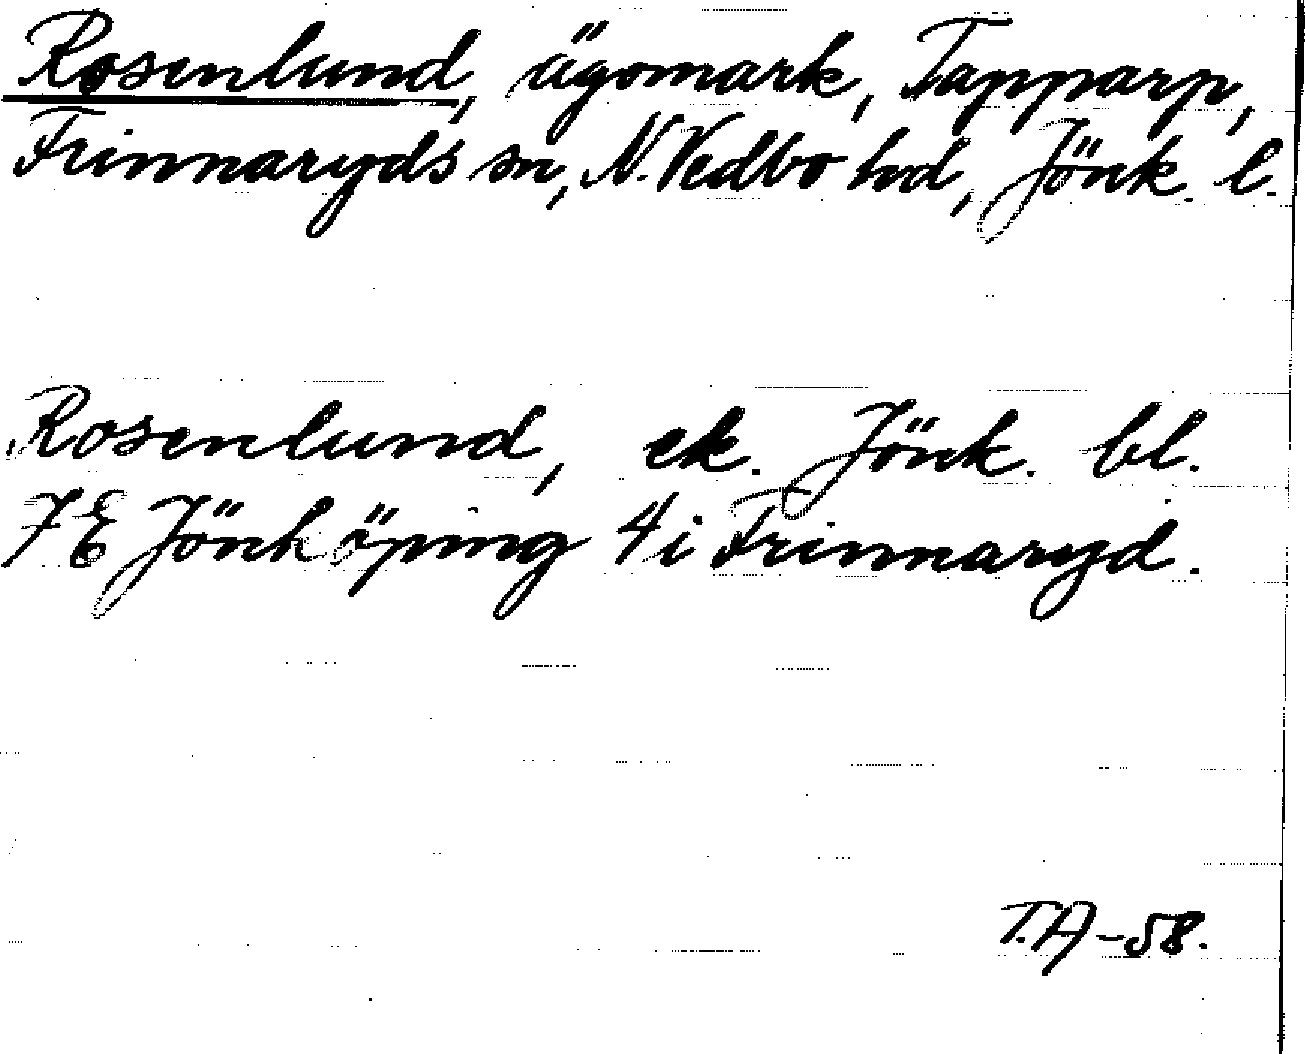 Rosenlund, ägomark, Tapparp,
Frinnaryds sn, N. Vedbo hd, Jönk. l.
Rosenlund, ek. Jönk. bl.
7E Jönköping 4i Frinnaryd.
T.A-58.